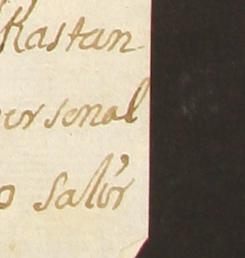 Kastan
ersonal
o salir